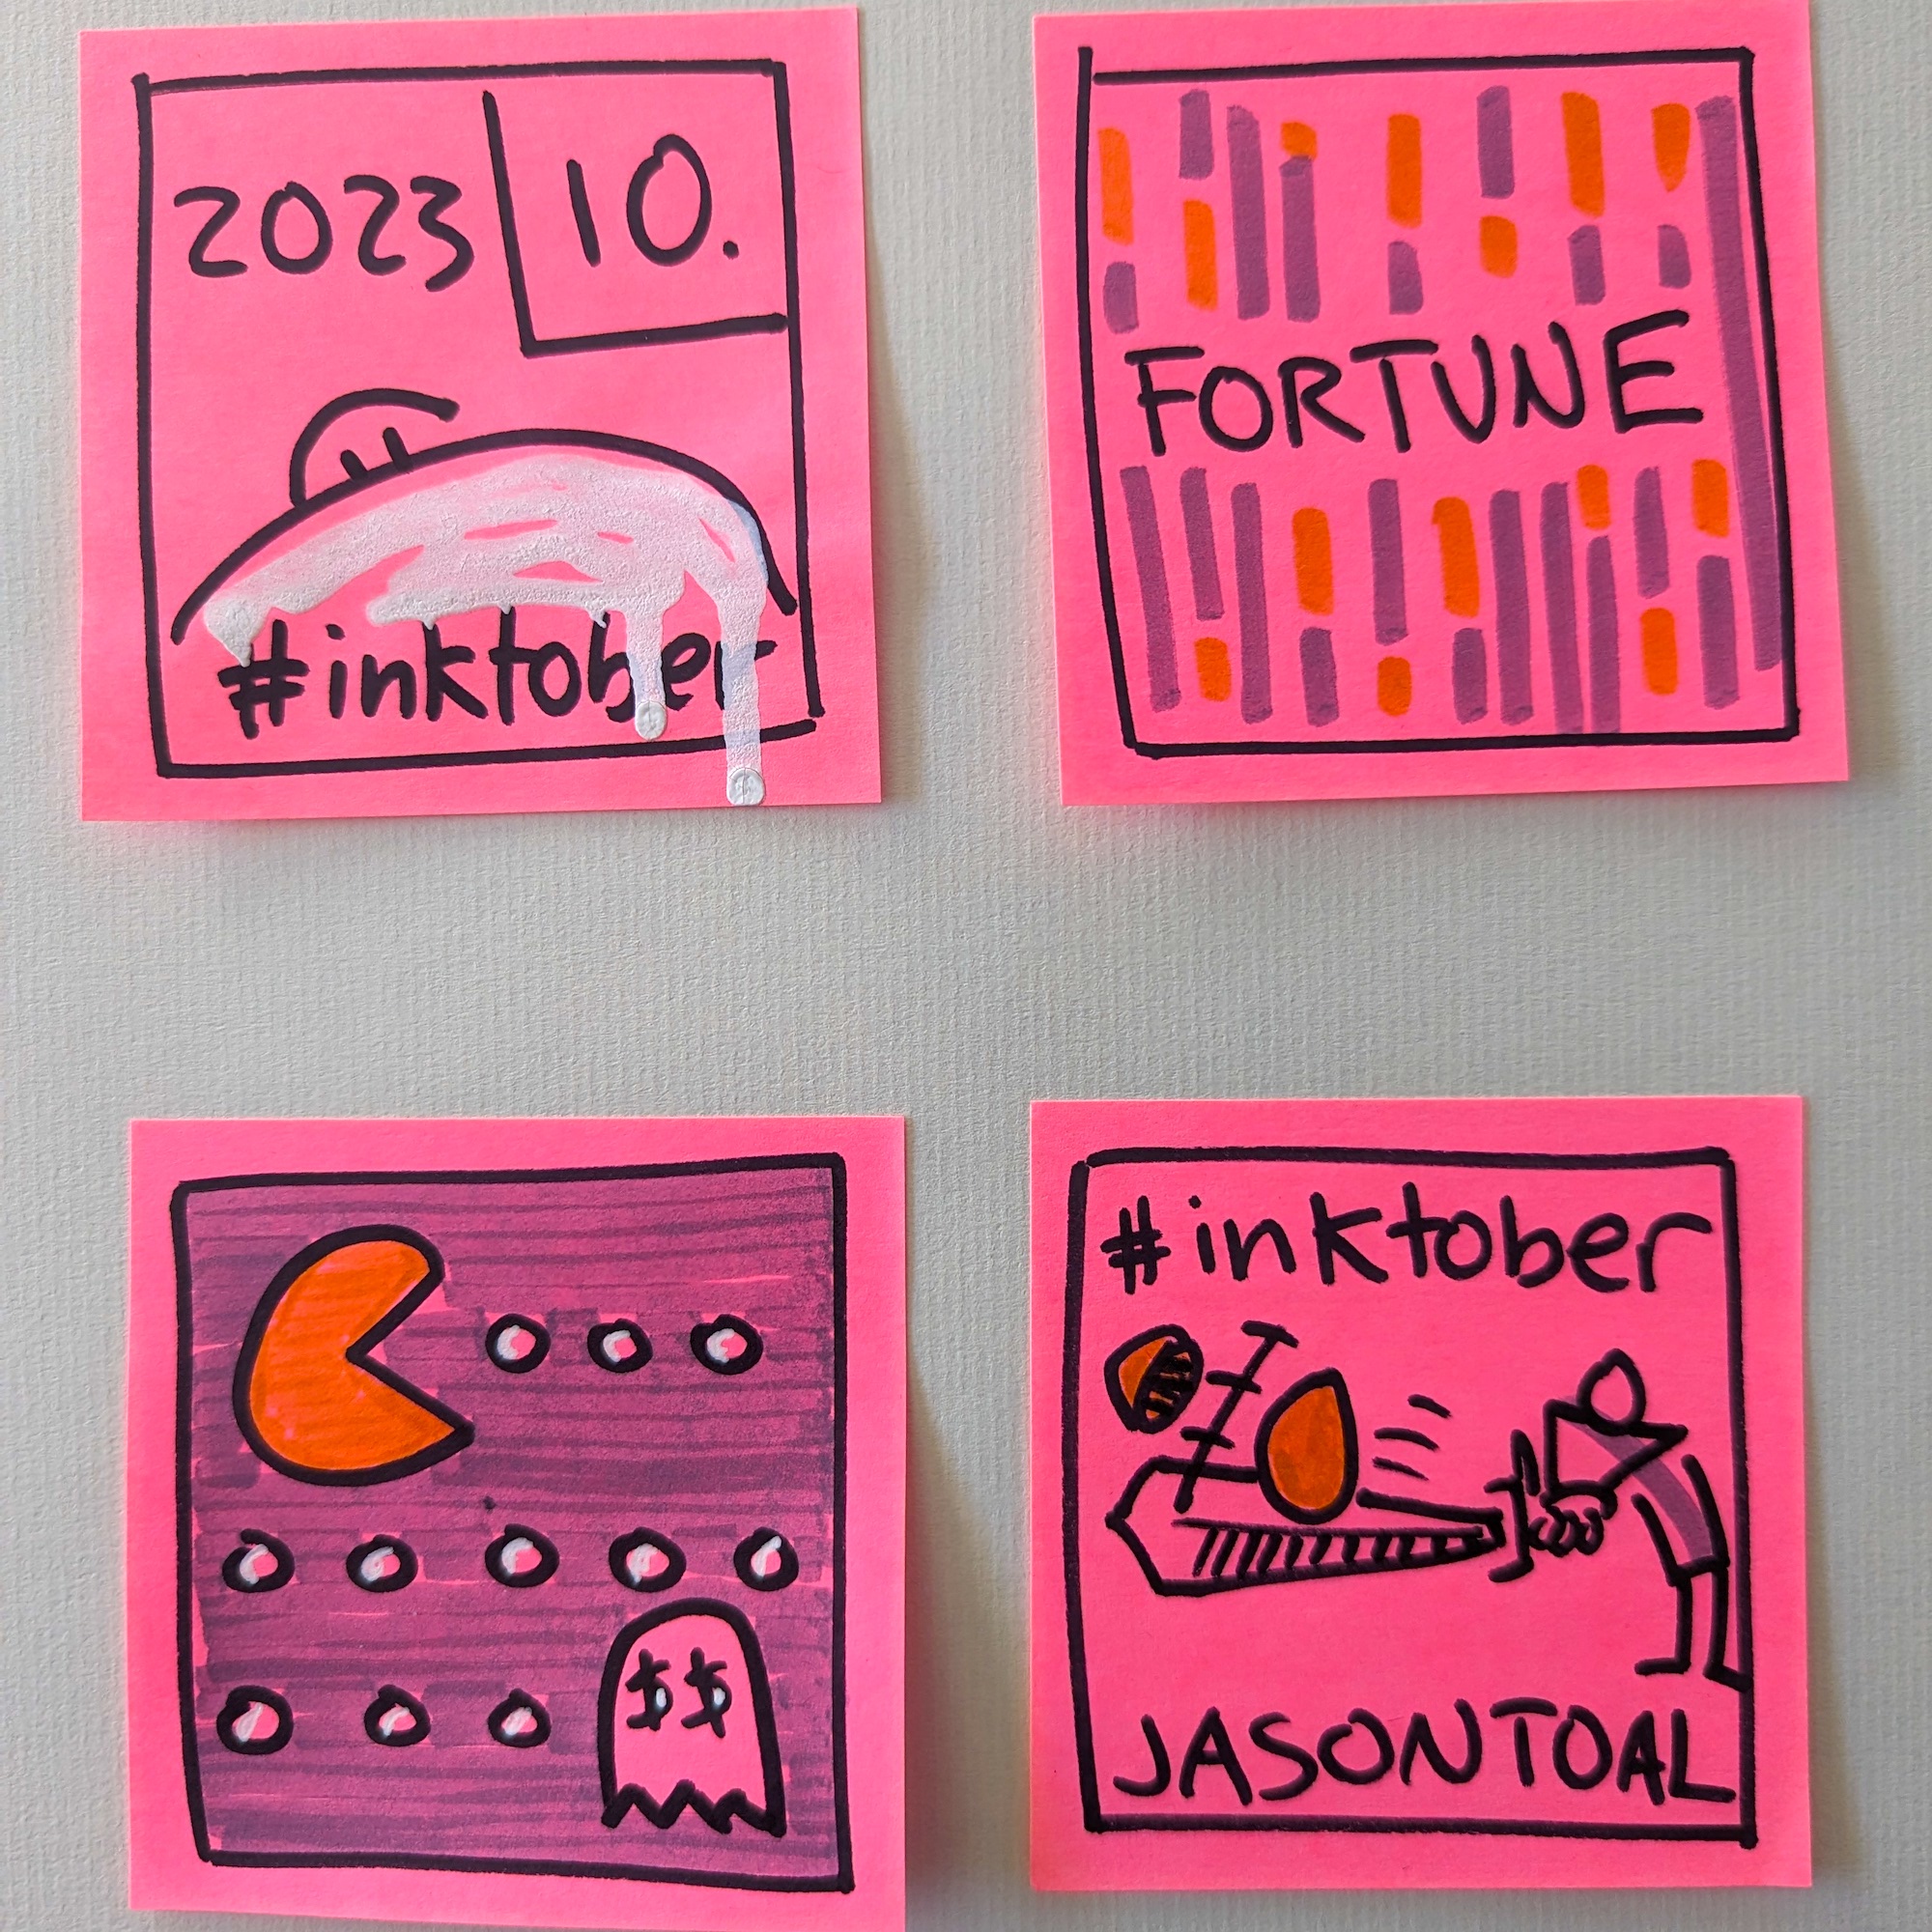 2023 10.
#inktober
FORTUNE
$$
#inktober
JASONTOAL